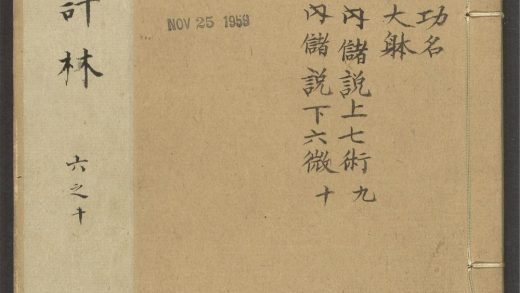 功名
大躰
内儲説上七術 九
内儲説下六微 十
NOV 25 1959
評林 六之十